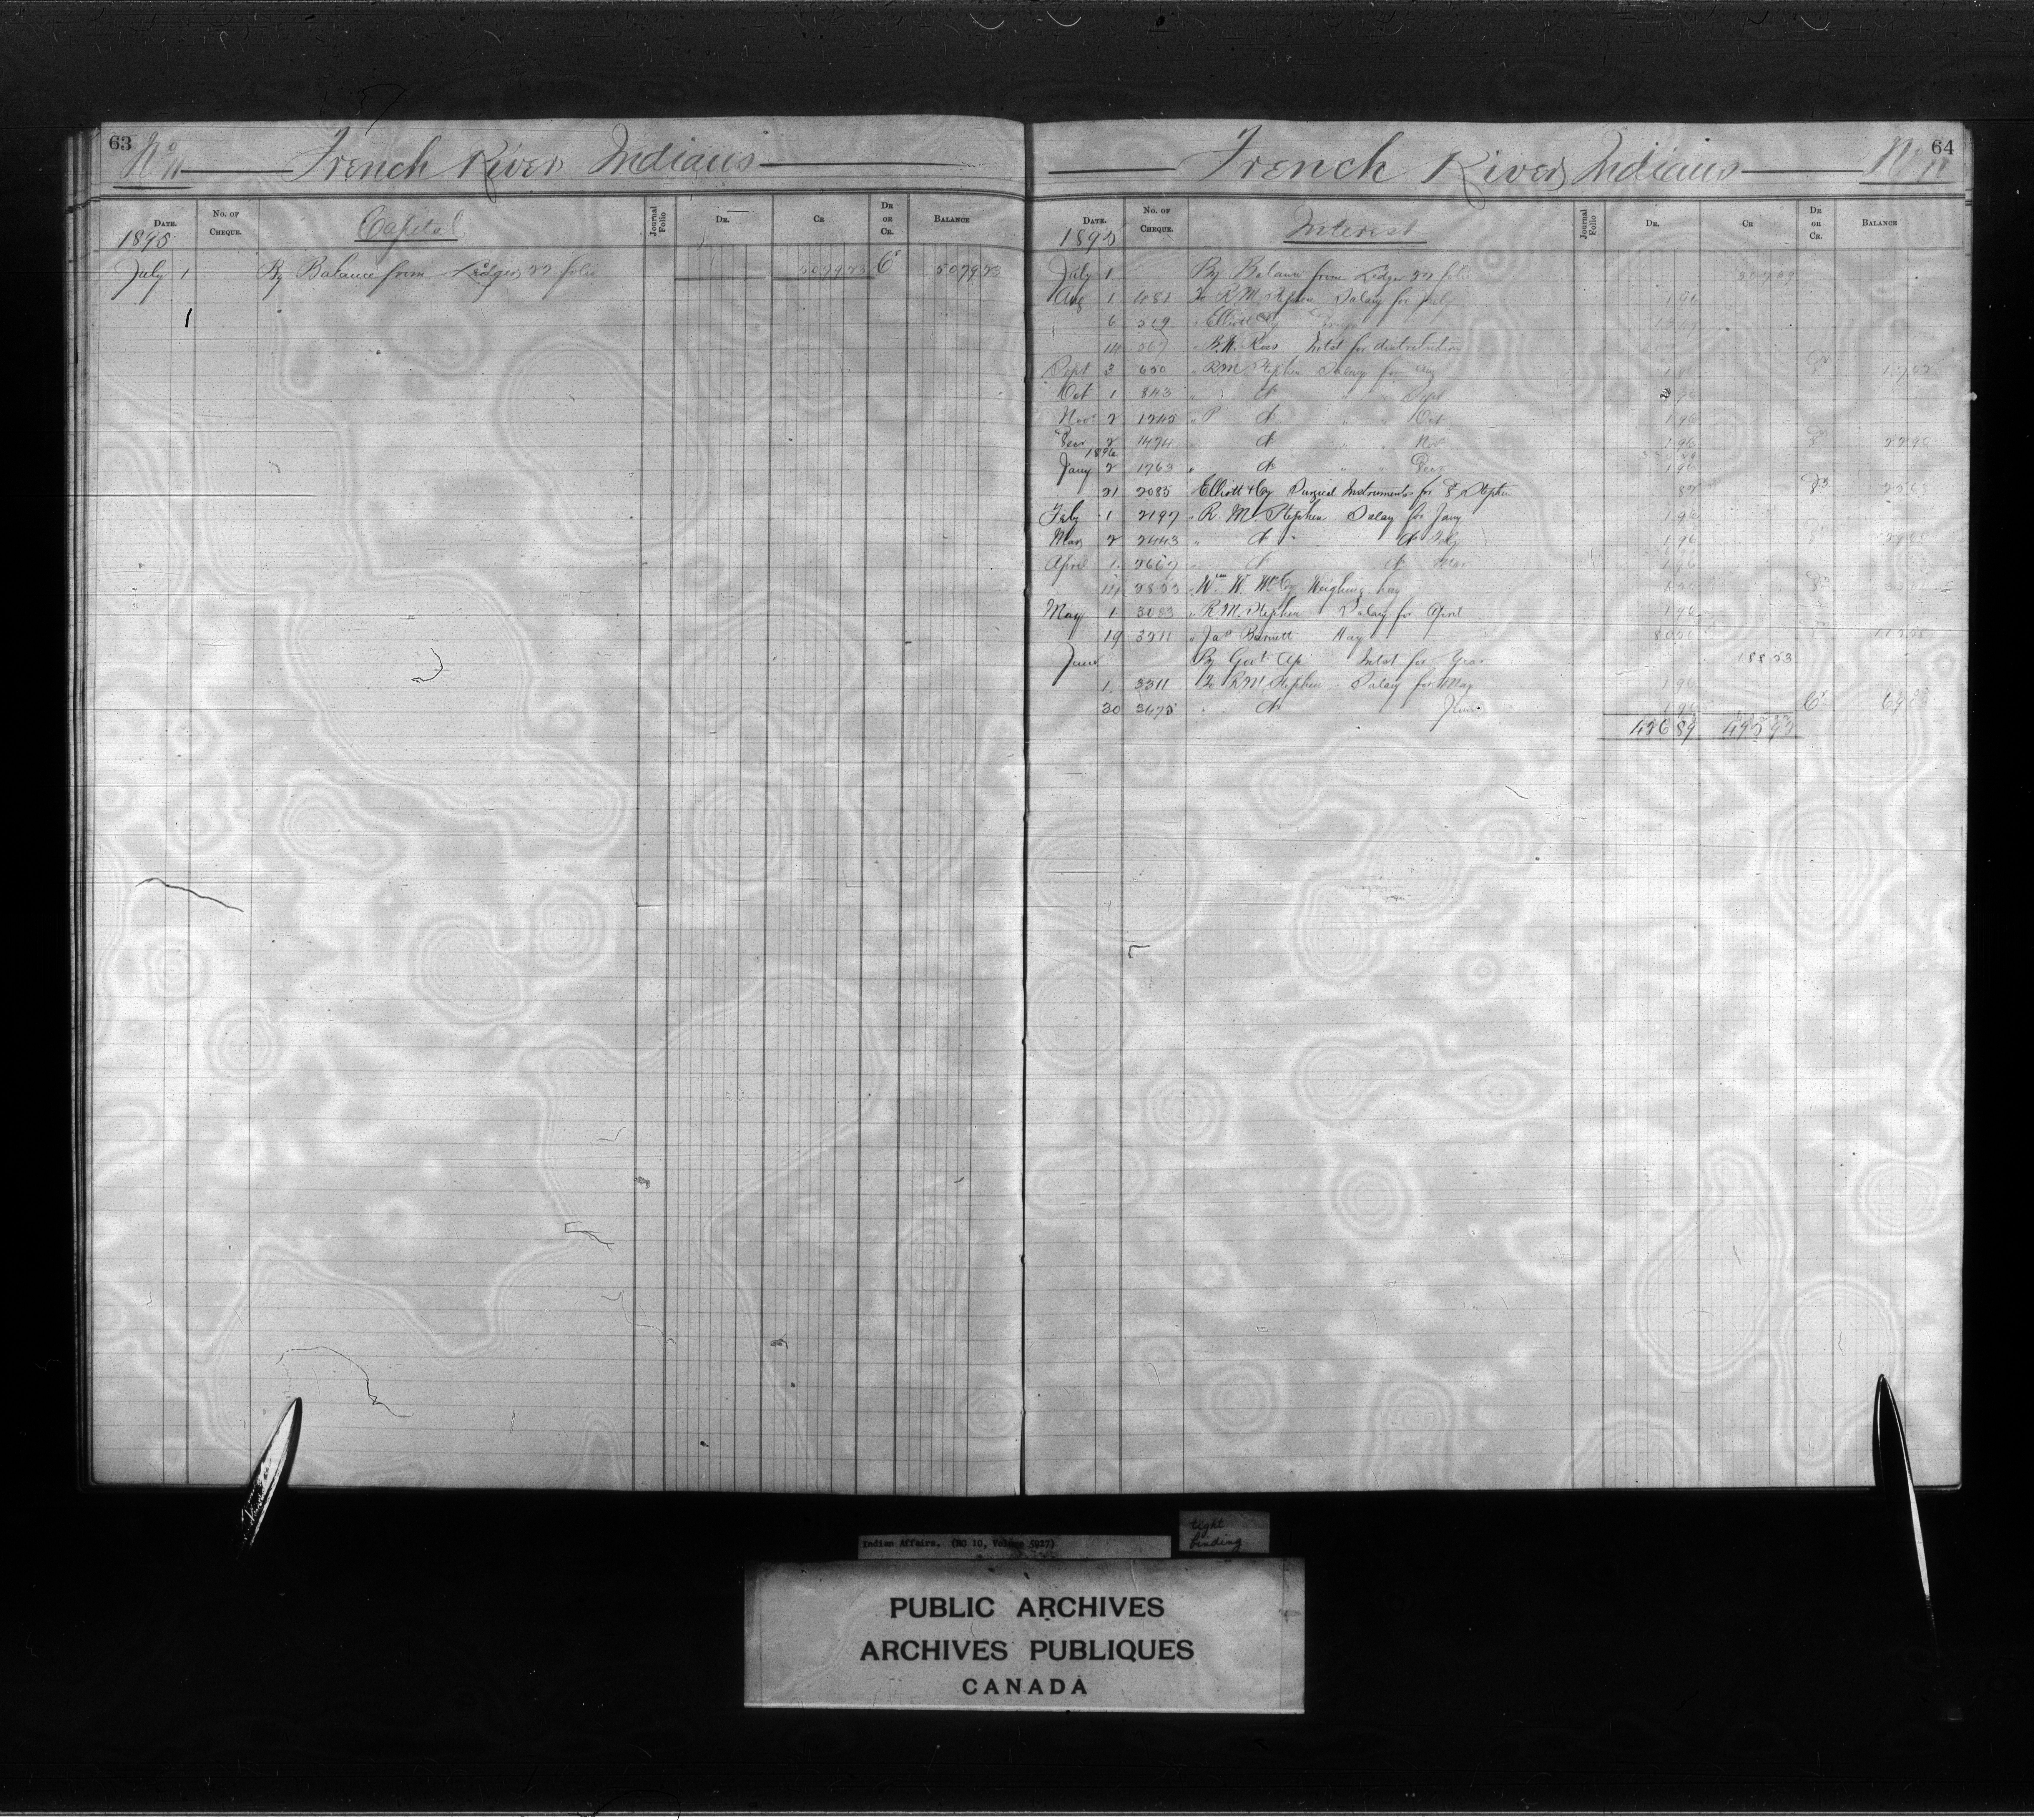 63
No 11 French River Indians
Date. No. of Cheque. Capital Journal Folio Dr. Cr Dr or Cr. Balance
1895
July 1 By Balance from Ledger 22 folio 5079 23 Cr 5079 23
64
French River Indians No 11
Date. No. of Cheque. Interest Journal Folio Dr. Cr Dr or Cr. Balance
1895
July 1 By Balance from Ledger 22 folio 307 39
Aug 1 481 To R M Stephen Salary for July 1 96
6 519 " Elliott & Co
14 567 " B. W. Ross Intst for distribution
Sept 3 650 " R M Stephen Salary for Aug 1 96
Oct 1 843 " do " " Sept 1 96
Nov 2 1245 " do " " Oct 1 96
Decr 2 1474 " do " " Nov 1 96 22 96
1896
Jany 2 1763 " do " " Decr 1 96
21 2085 Elliott & Co Surgical Instruments for Dr Stephen 82
Feby 1 2197 " R. M. Stephen Salary for Jany 1 96
Mar 2 2443 " do do Feby 1 96
April 1 2607 " do do Mar 1 96
14 2822 " Wm W. McCoy Weighing hay
May 1 3083 " R M Stephen Salary for April 1 96
19 3211 " Jas Barnett Hay
June By Govt Ap Intst for Year 188 53
1 3311 To R M Stephen Salary for May 1 96
30 3675 " do June 1 96 Cr
426 89 495 92
Indian Affairs. (RG 10, Volume 5927)
tight
binding
PUBLIC ARCHIVES
ARCHIVES PUBLIQUES
CANADA